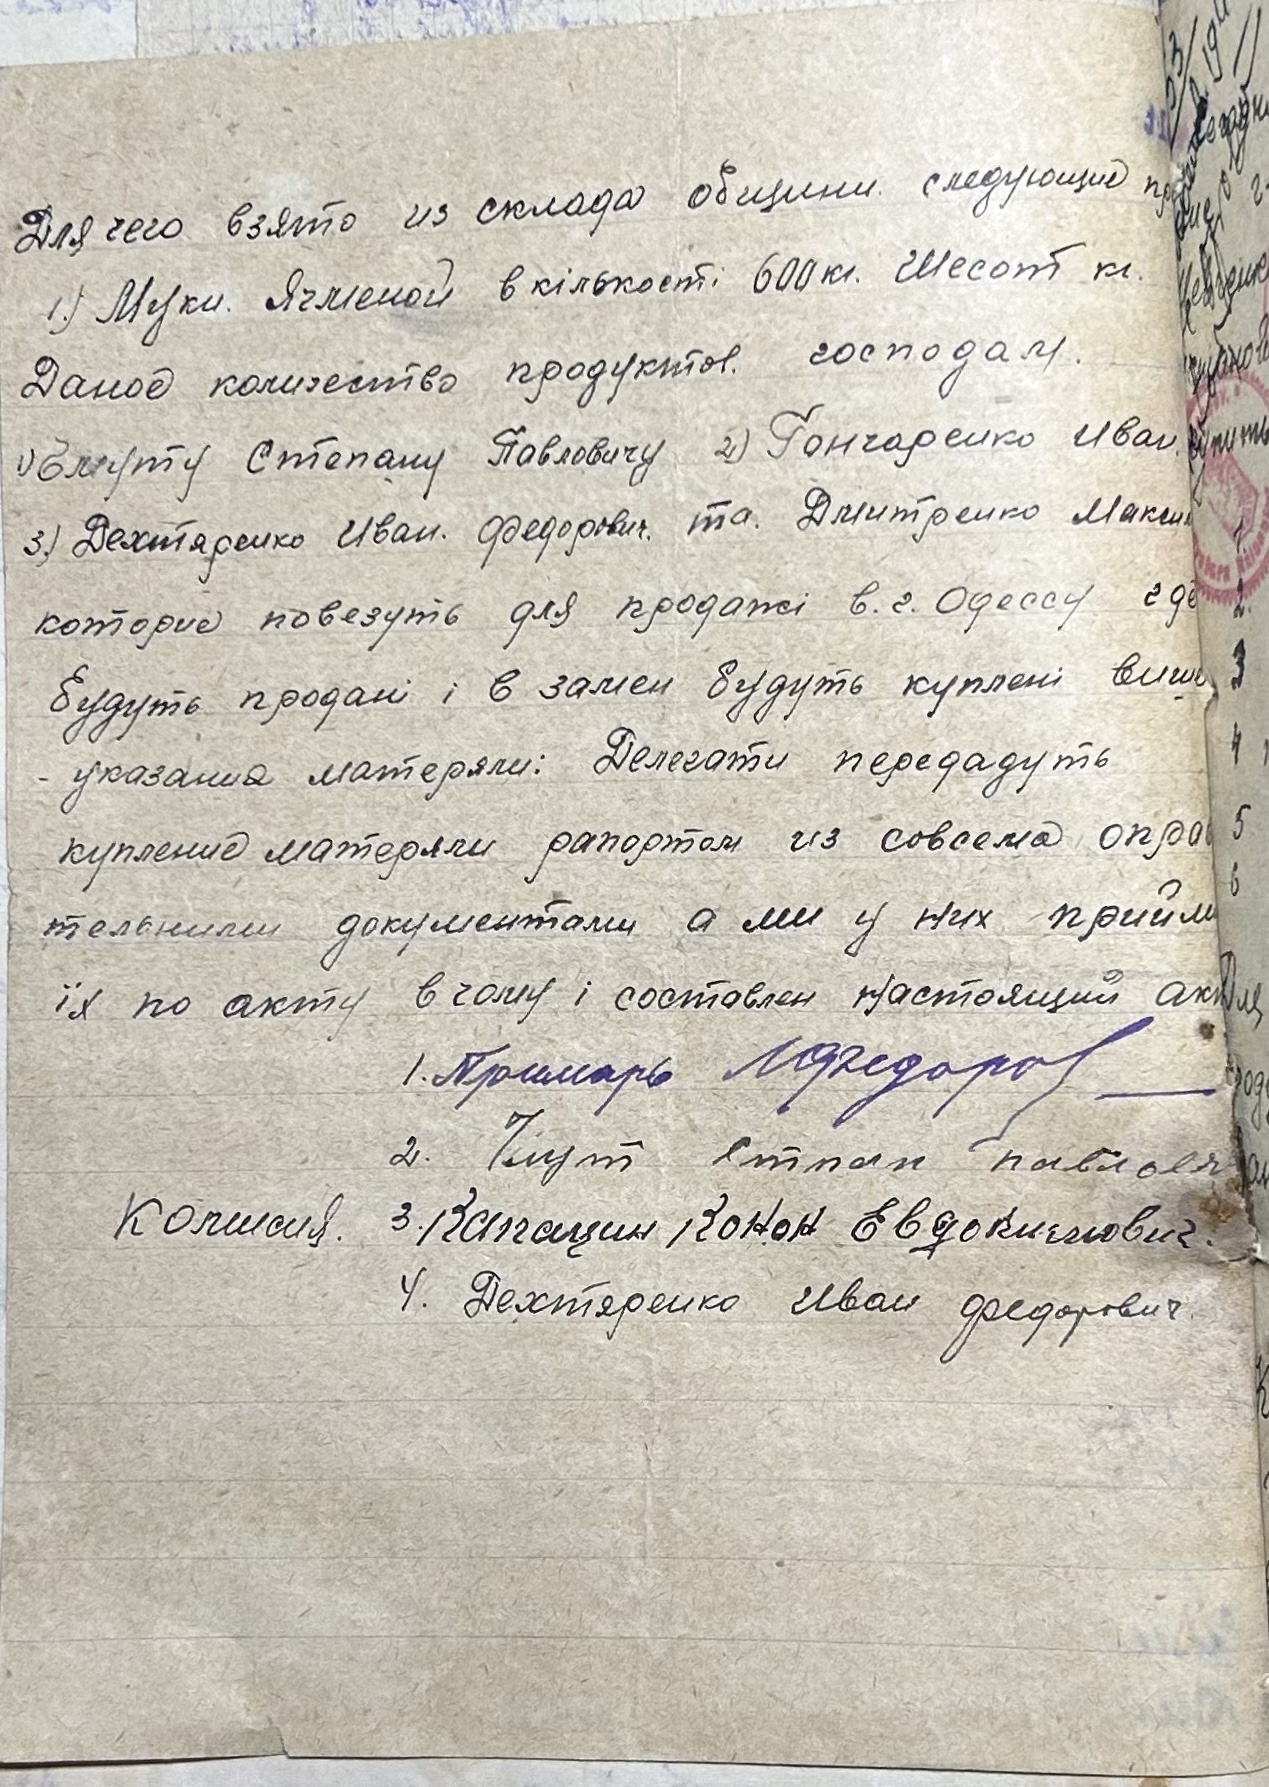 Для чего взято из склада общини. следующие
1.) Муки. Ячменой в кількості 600 кг. Шесот кг.
Даное количество продуктов. господам.
1) Степану Павловичу 2) Гончаренко Иван.
3.) Дехтяренко Иван. Федорович. та. Дмитренко Максим
которие повезуть для продажі в. г. Одессу где
будуть продані і в замен будуть куплені више
- указание матеряли: Делегати передадуть
купление матеряли рапортом из совсема оправ
тельними документами а ми у них прийм
їх по акту в чому і составлен настоящий акт
1. Примарь Федоров
2. Степан Павлович
Комисия. 3. Капацин Конон Евдокимович.
4. Дехтяренко Иван Федорович.
1.
2.
3
4
5
6